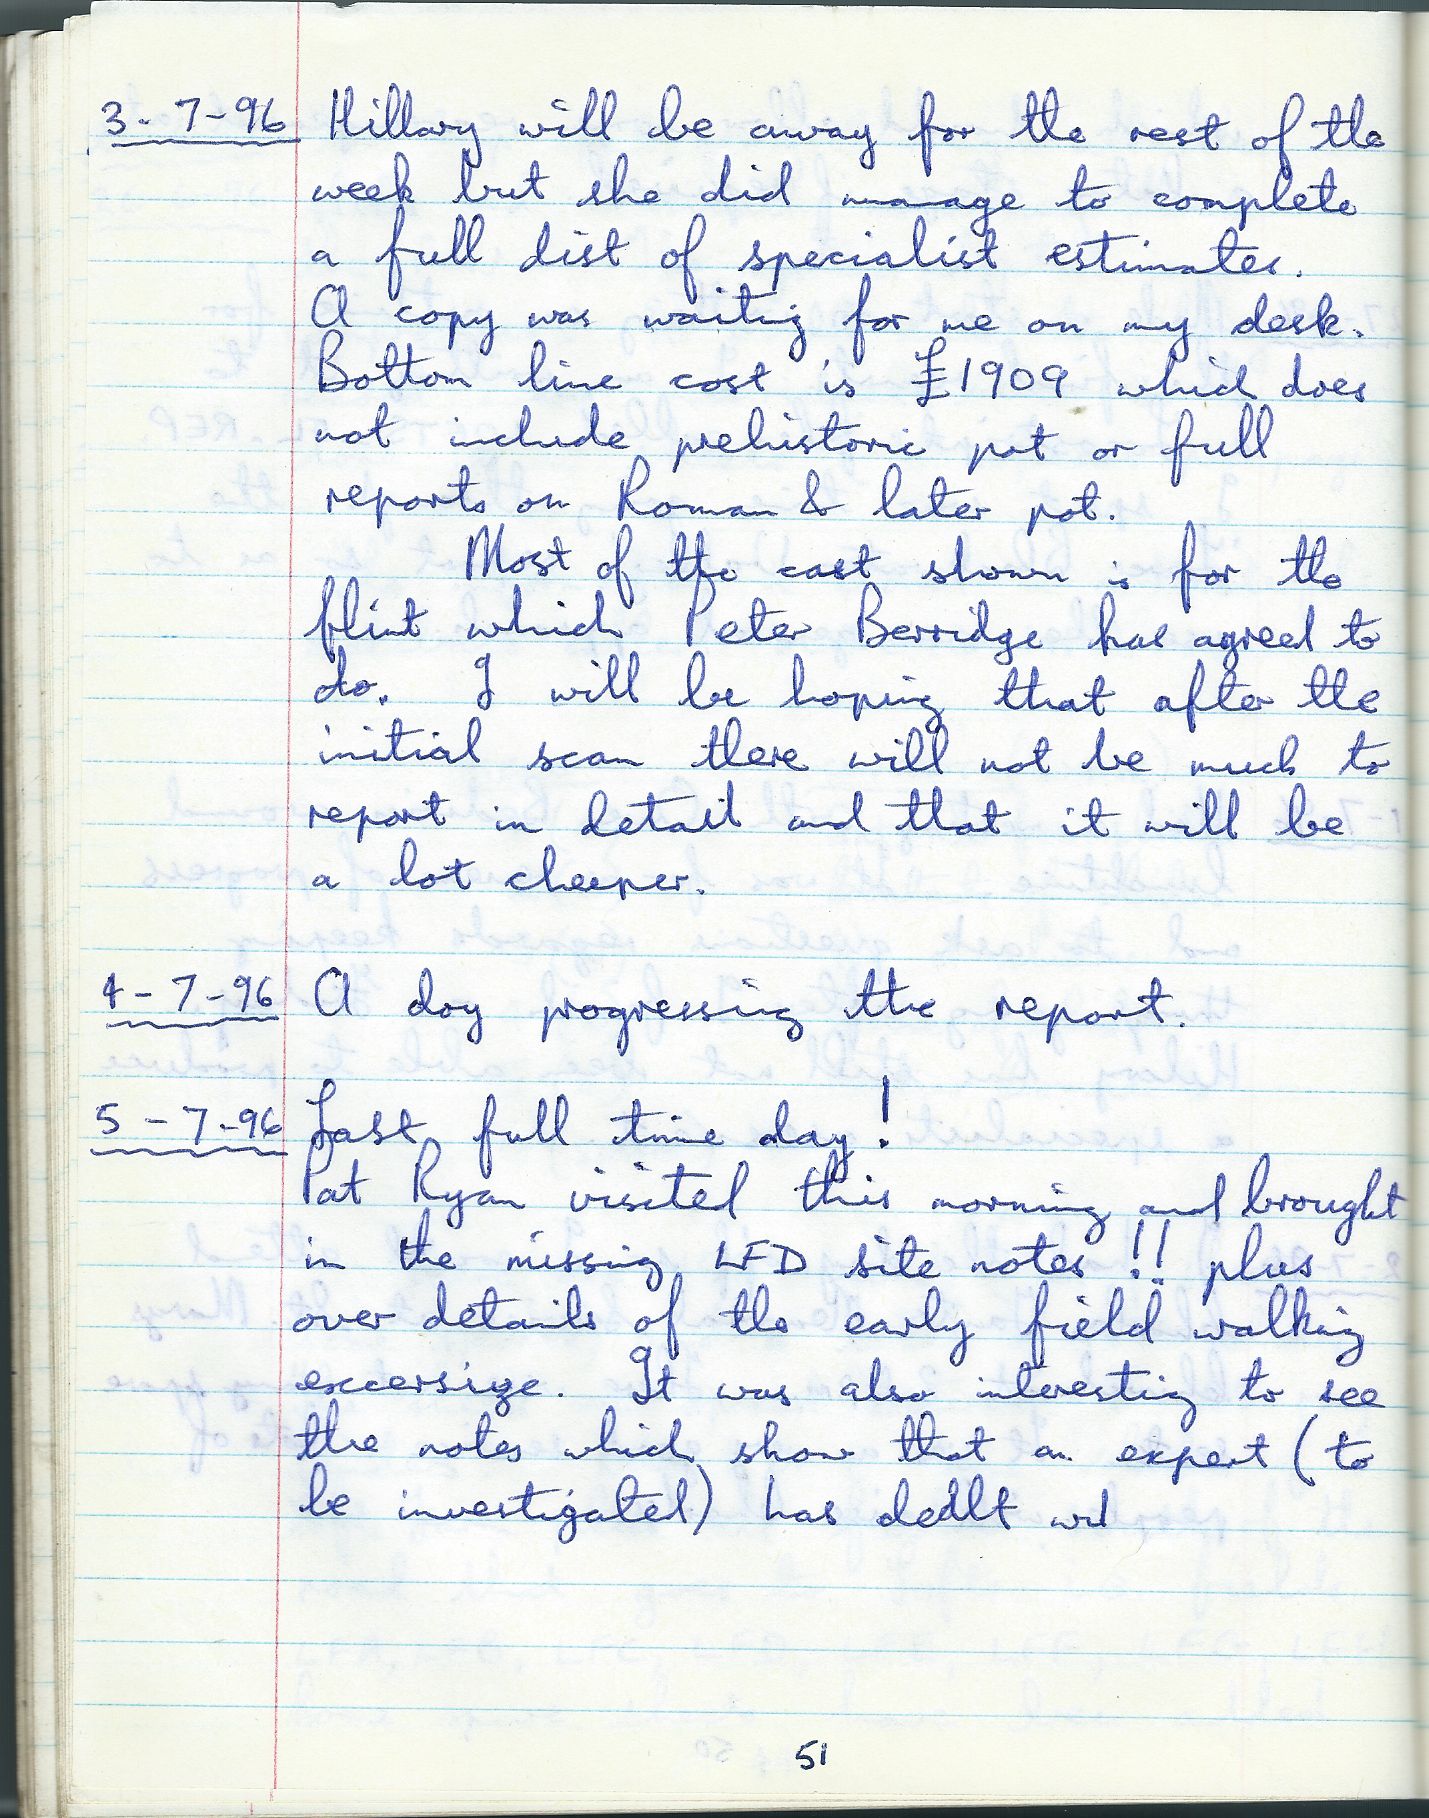 3-7-96 Hillary will be away for the rest of the
week but she did manage to complete
a full list of specialist estimates.
A copy was waiting for me on my desk.
Bottom line cost is £1909 which does
not include prehistoric pot or full
reports on Roman & later pot.
Most of the cost shown is for the
flint which Peter Berridge has agreed to
do. I will be hoping that after the
initial scan there will not be much to
report in detail and that it will be
a lot cheeper.
4-7-96 A day progressing the report.
5-7-96 Last full time day!
Pat Ryan visited this morning and brought
in the missing LFD site notes!! plus
over details of the early field walking
excersize. It was also interesting to see
the notes which show that an expert (to
be investigated) has dealt
51